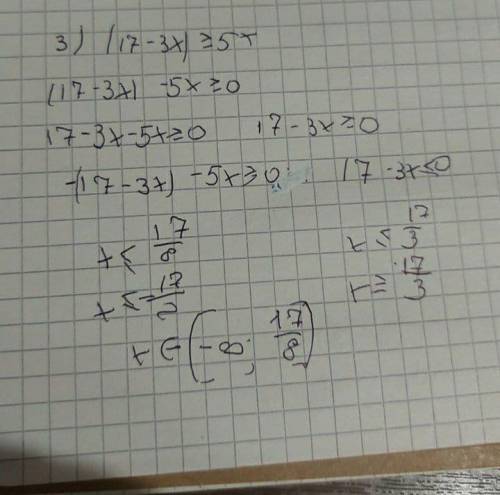 3) |17-3x| ≥ 5x
|17-3x| -5x ≥ 0
17-3x-5x ≥ 0 17-3x ≥ 0
-(17-3x) -5x ≥ 0; 17-3x < 0
x ≤ 17/8 x ≤ 17/3
x ≤ -17/2 x ≥ 17/3
x ∈ (-∞; 17/8)